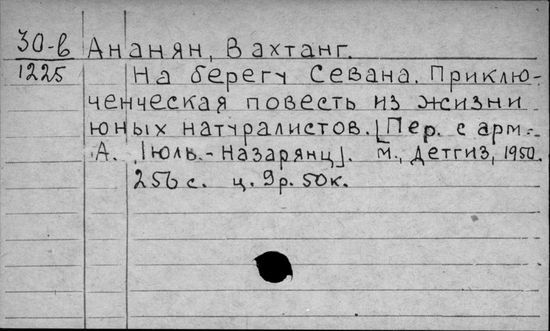 30-в
1225
Ананян, Вахтанг.
На берегу Севана. Приклю-
ченческая повесть из жизни
юных натуралистов. [Пер. с арм.
А. Тюль.-Назарянц]. М., Детгиз, 1950.
256 с. ц. 9р. 50к.